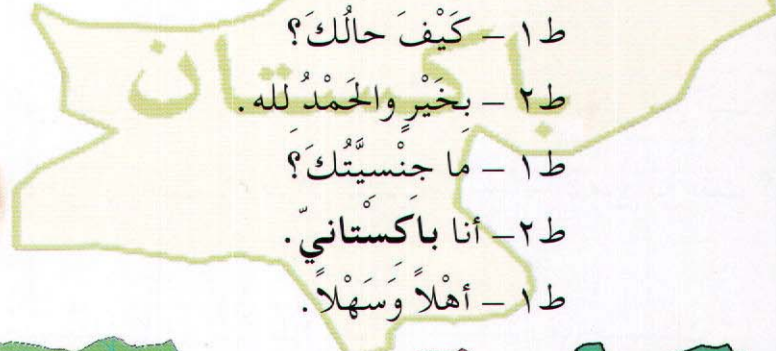 باكستان
ط١ – كَيْفَ حالُكَ؟
ط٢ – بِخَيْرٍ والحَمْدُ لِله.
ط١ – ما جِنْسيَّتُكَ؟
ط٢– أنا باكِسْتانيّ.
ط١ – أهْلاً وَسَهْلاً.